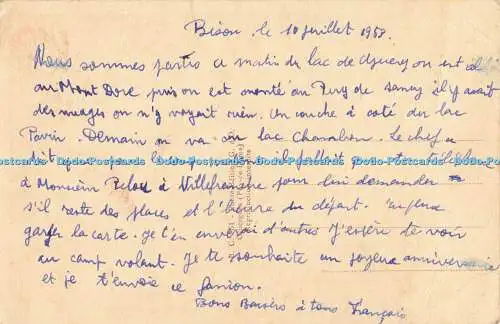 le 10 juillet 1958.
Nous sommes partis ce matin du lac de on est
au Mont Dore puis on est monté au Puy de Sancy il y avait
des nuages on n'y voyait rien. On couche à coté du lac
Pavin. Demain on va au lac Chambon. Le chef a
dit que pour le il fallait
à Monsieur à Villefranche pour lui demander
s'il reste des places et l'heure du départ. Tu peux
garder la carte. Je t'en enverai d'autres J'espère te voir
au camp volant. Je te souhaite un joyeux anniversaire
et je t'envoie ce fanion.
Bons Baisers à tous François
Postcards Dodo-Postcards Dodo-Postcards Dodo-Postcards Dodo-Postcards